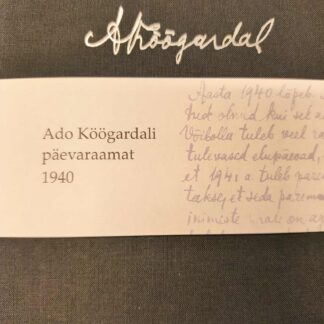 AKöögardal
Ado Köögardali
päevaraamat
1940
Aasta 1940 lõpeb
tud olnud kui sel a
Võibolla tuleb veel ra
tulevased elupäevad,
et 1941. a tuleb parem
takse, et seda parema
inimiste